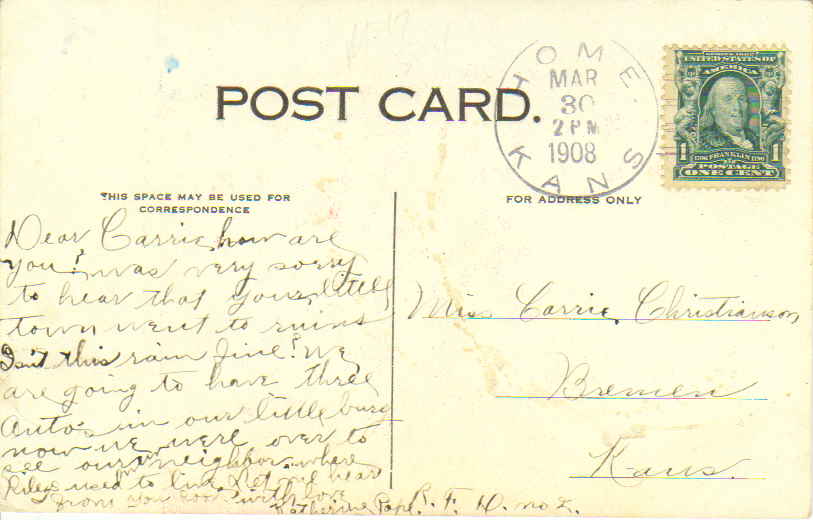 POST CARD.
HOME. KANS
MAR
30
2 PM
1908
SERIES 1902
UNITED STATES OF
AMERICA
1 1706 FRANKLIN 1790 1
POSTAGE
ONE CENT
THIS SPACE MAY BE USED FOR
CORRESPONDENCE
Dear Carrie, how are
you? was very sorry
to hear that your little
town went to ruins
Isn't this rain fine! We
are going to have three
Autos in our little burg
now we were over to
see our new neighbor where
Riley used to live. Let me hear
from you soon with love
Katherine Pape.
FOR ADDRESS ONLY
Miss Carrie Christianson
Bremen
Kans.
R. F. D. no 2.